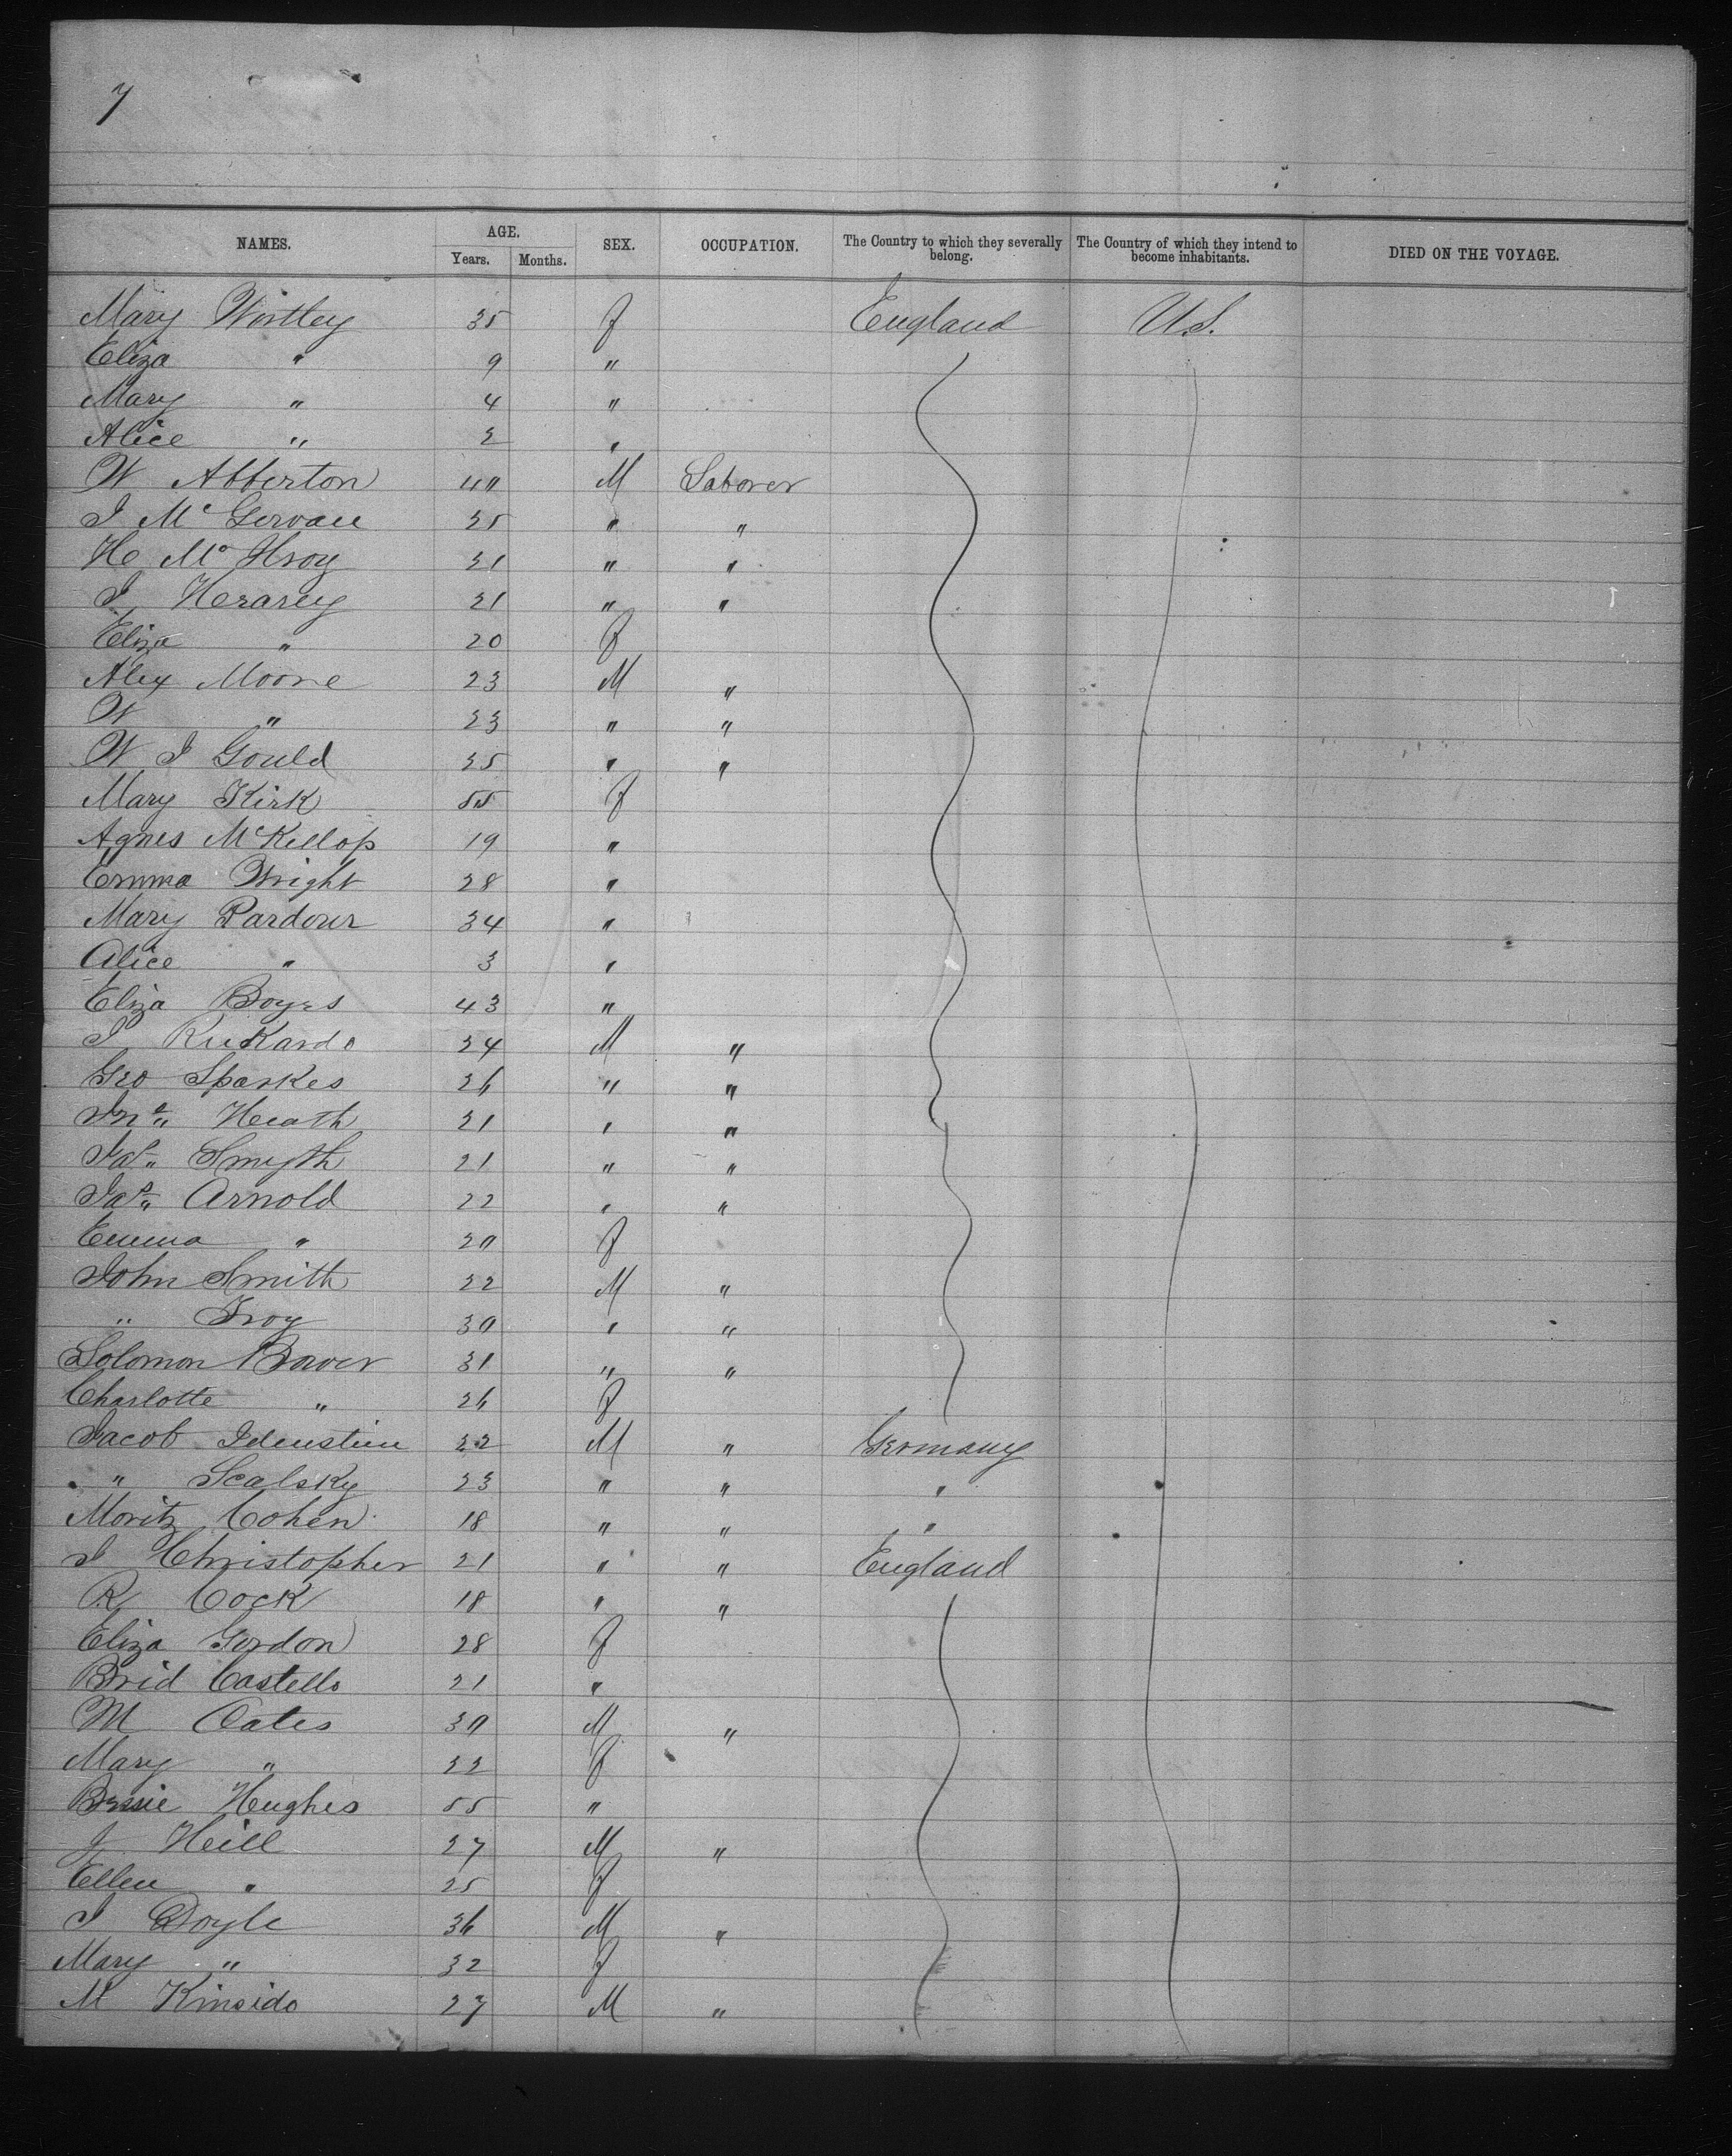 7
NAMES. AGE. SEX. OCCUPATION. The Country to which they severally belong. The Country of which they intend to become inhabitants. DIED ON THE VOYAGE.
Years. Months.
Mary Wortley 35 f England U.S.
Eliza " 9 "
Mary " 4 "
Alice " 2 "
W Abberton 40 M Laborer
J Mc 25 " "
H Mc Ilroy 21 " "
J 21 " "
Eliza " 20 f
Alex Moore 23 M "
W " 23 " "
W J Gould 35 " "
Mary Kirk 55 f
Agnes McKellop 19 "
Emma Wright 28 "
Mary Pardour 34 "
Alice " 3 "
Eliza Boyes 43 "
J Rickards 24 M "
Geo Sparkes 26 " "
Jno Heath 21 " "
Jas Smyth 21 " "
Jas Arnold 22 " "
Emma " 20 f
John Smith 22 M "
" Troy 30 " "
Solomon Bower 31 " "
Charlotte " 26 f
Jacob 22 M " Germany
" Scalsky 23 " " "
Moritz Cohen 18 " " "
J Christopher 21 " " England
R Cock 18 " "
Eliza Gordon 28 f
Brid Costello 21 "
M Oates 30 M "
Mary " 22 f
Bessie Hughes 55 "
J Heill 27 M "
Ellen " 25 f
J Doyle 36 M "
Mary " 32 f
M Kinsido 27 M "